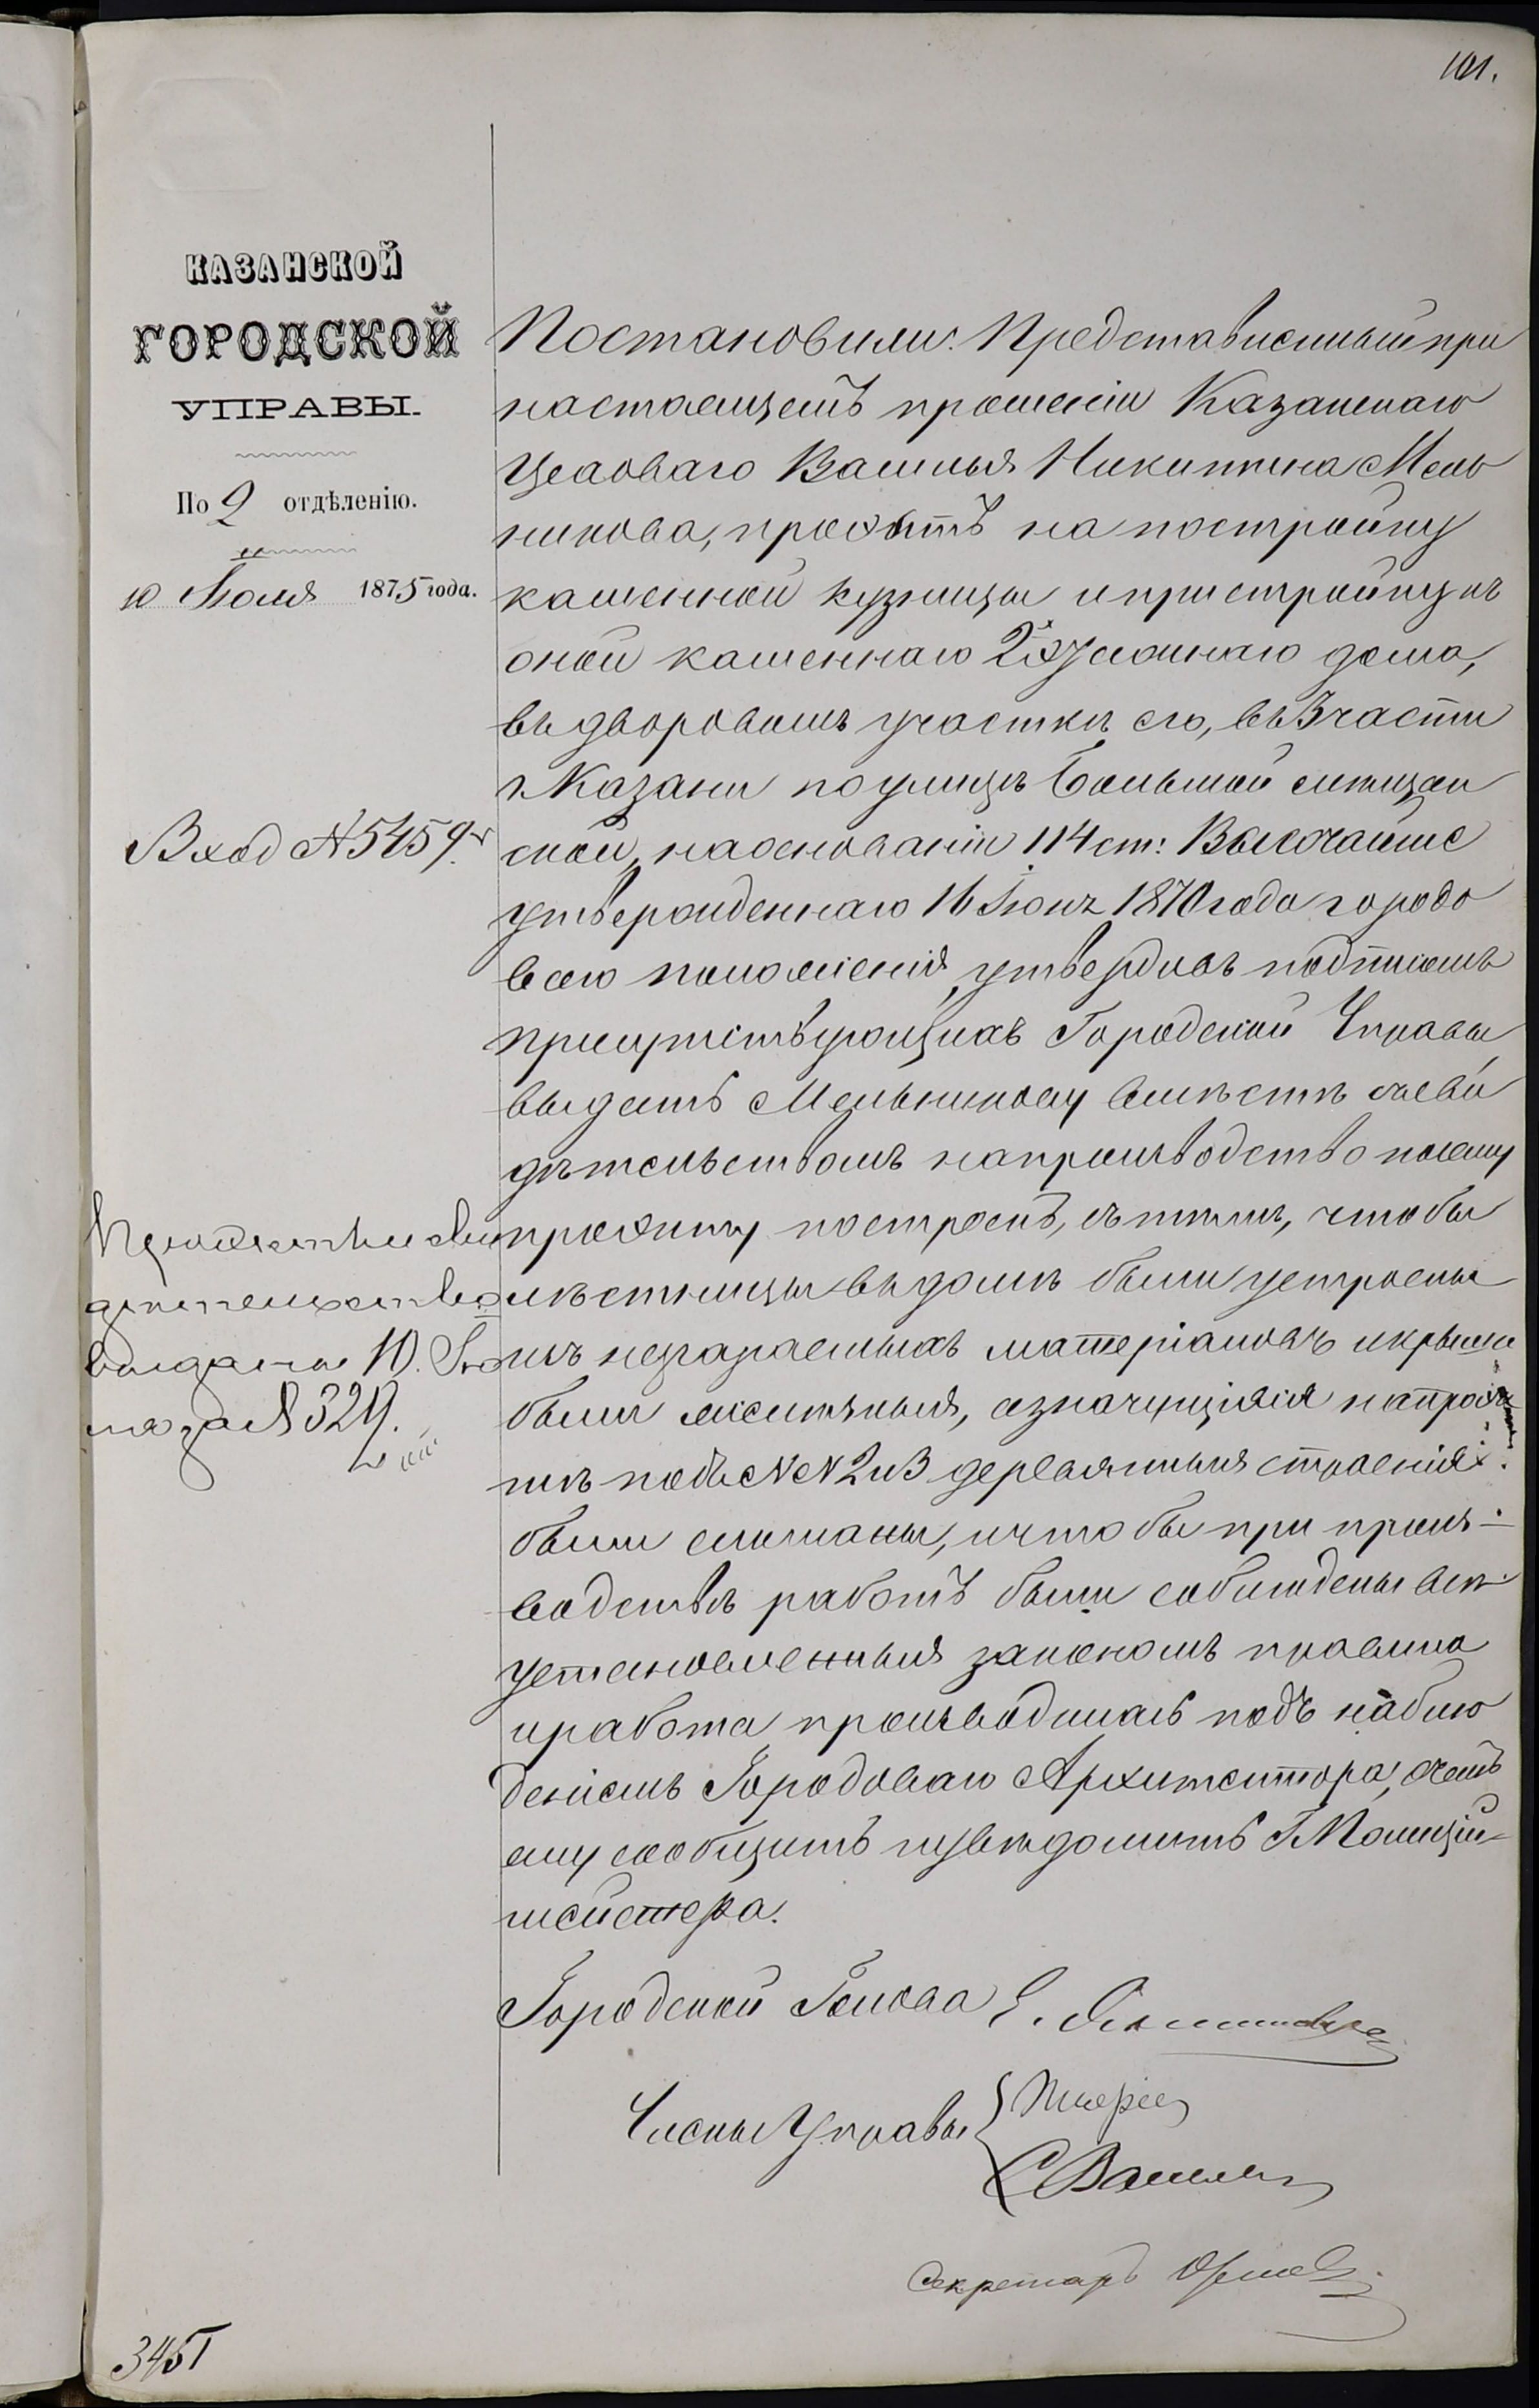 101.
КАЗАНСКОЙ
ГОРОДСКОЙ
УПРАВЫ.
По 2 отдѣленію.
10 Іюля 1875 года.
Вход №5459.
Проэктъ и сви
дѣтельство
выданы 10. Ію
ля за № 329.
Постановили: Представленный при
настоящемъ прошеніи Казанскаго
Цеховаго Василья Никитина Мель
никова, проэктъ на постройку
каменной кузницы и пристройку къ
оной каменнаго 2хъ этажнаго дома,
въ дворовомъ участкѣ его, въ 3 части
г. Казани по улицѣ Большой мѣщан
ской, на основаніи 114 ст: Высочайше
утвержденнаго 16 Іюня 1870 года городо
ваго положенія, утвердивъ подписомъ
присутствующихъ Городской Управы
выдать Мельникову вмѣстѣ съ сви
дѣтельствомъ на производство по сему
проэкту построекъ, съ тѣмъ, чтобы
лѣстницы въ домѣ были устроены
изъ несгараемыхъ матеріаловъ и крыши
были желѣзныя, а значущіяся на проэк
тѣ подъ №№ 2 и 3 деревянныя строенія
были сломаны, и чтобы при произ-
водствѣ работъ были соблюдены всѣ
установленныя закономъ правила
и работа производилась подъ наблю
деніемъ Городоваго Архитектора, о чемъ
ему сообщить и увѣдомить Г. Полицій-
мейстера.
Городской Голова
Члены Управы
Секретарь
3451